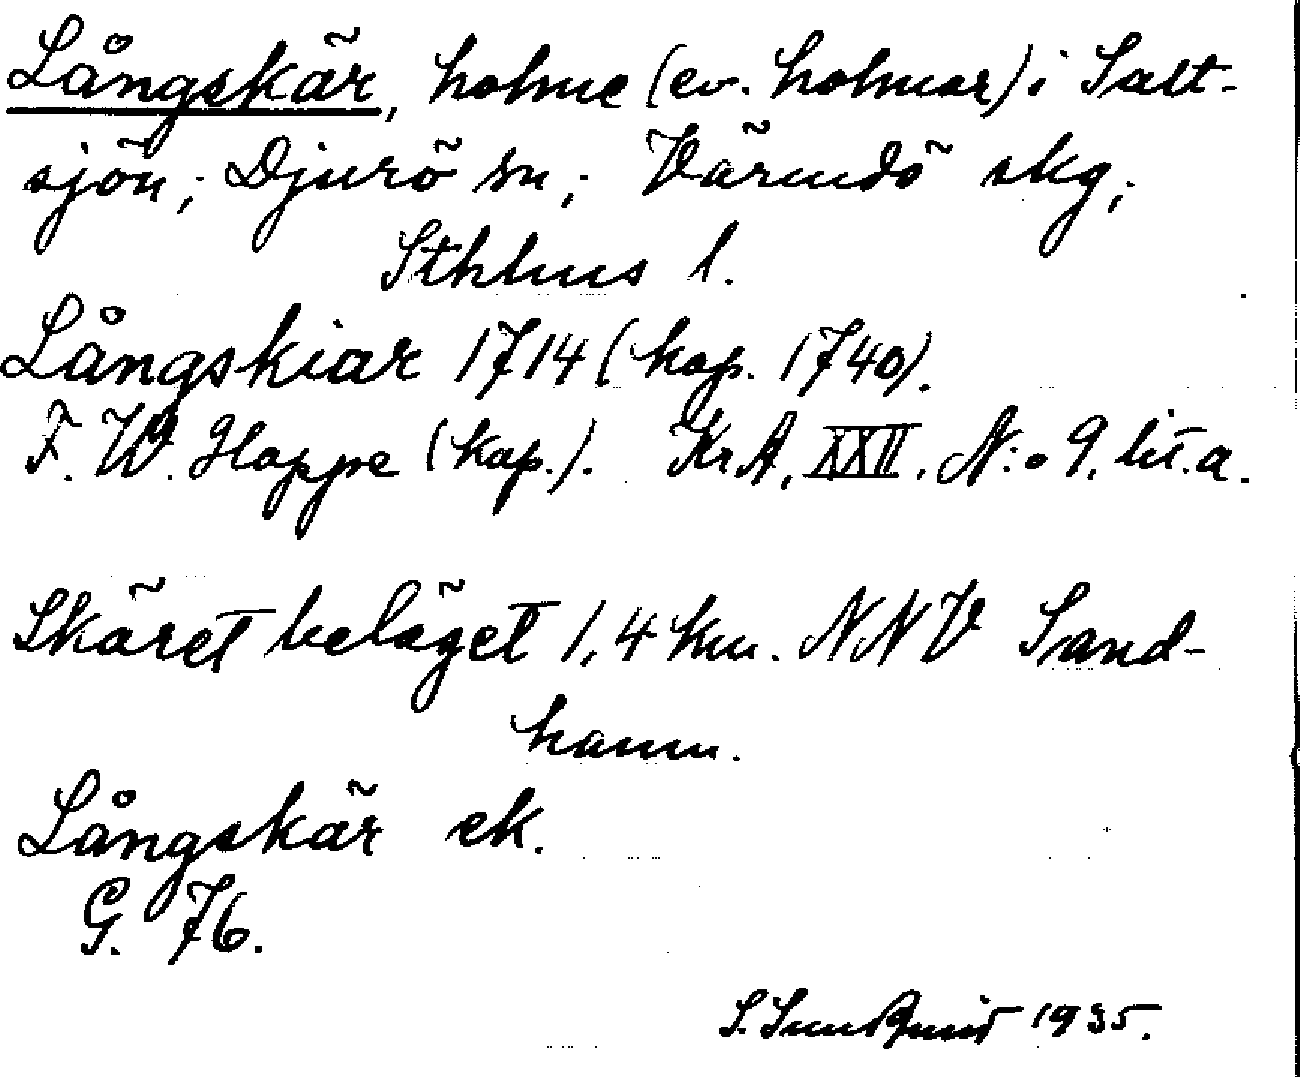 Långskär, holme (ev. holmar) i Salt-
sjön; Djurö sn; Värmdö skg;
Sthlms l.
Långskiär 1714 (kop. 1740).
F. W. Hoppe (kop.). KrA, XXII. N:o 9. lit. a.
Skäret beläget 1,4 km. NNV Sand-
hamn.
Långskär ek.
G. 76.
S. 1935.